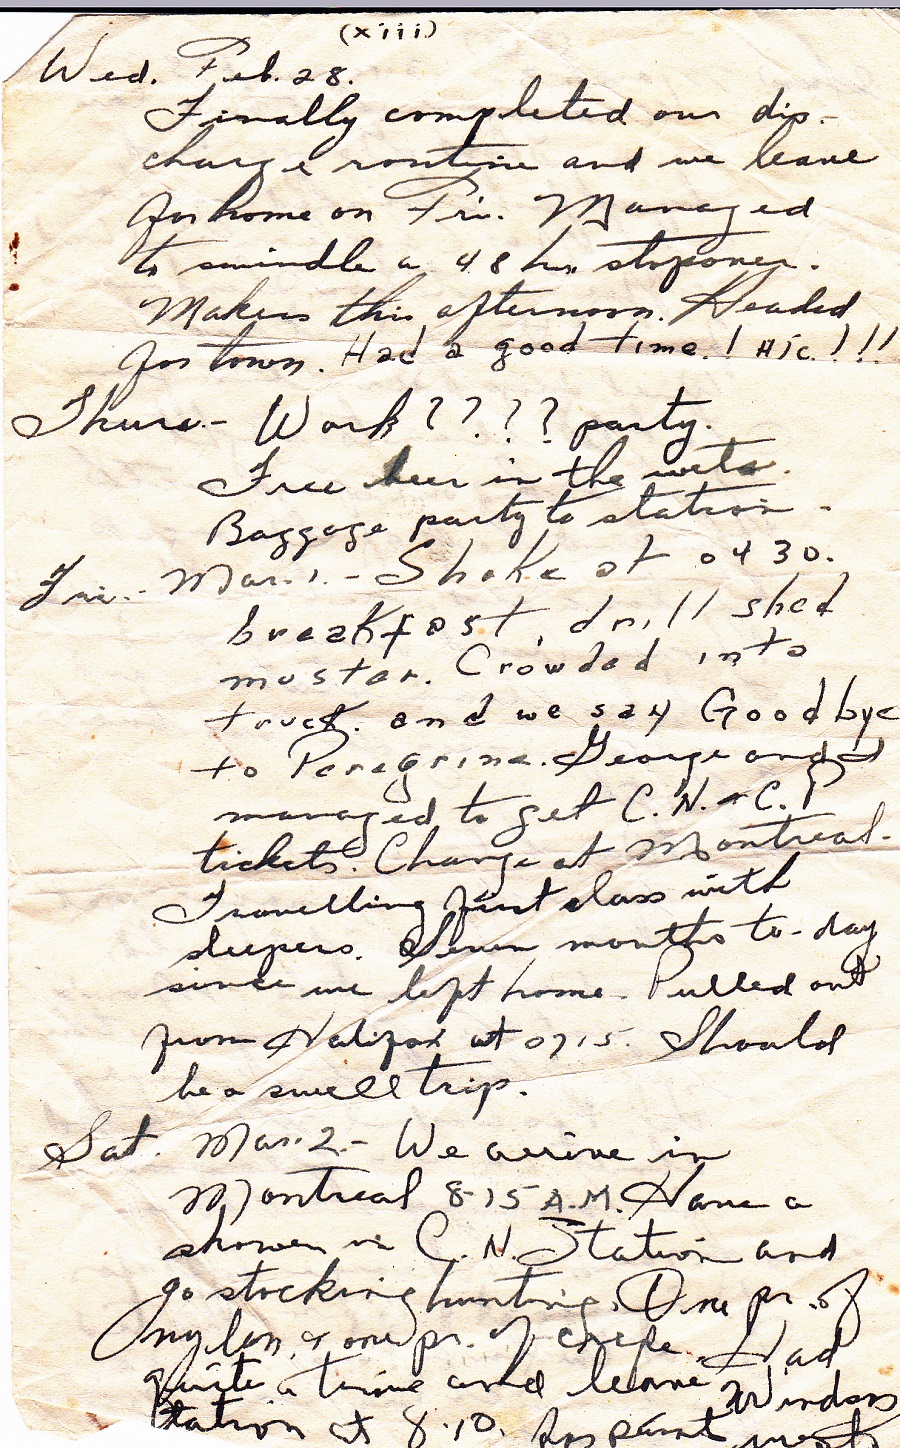 (xiii)
Wed. Feb. 28.
Finally completed our dis-
charge routine and we leave
for home on Fri. Managed
to swindle a 48 hr. stopover.
Makers this afternoon. Headed
for town. Had a good time.! Hic.!!!
Thurs.- Work???? party.
Free beer in the wets.
Baggage party to station.
Fri.- Mar. 1.- Shake at 0430.
breakfast, drill shed
muster. Crowded into
truck. and we say Goodbye
to Peregrine. George and I
managed to get C.N. & C.P
tickets. Change at Montreal.
Travelling first class with
sleepers. Seven months to-day
since we left home. Pulled out
from Halifax at 0715. Should
be a swell trip.
Sat. Mar. 2.- We arrive in
Montreal 8-15 A.M. Have a
shower in C.N. Station and
go stocking hunting. One pr. of
nylon, & one pr. of crepe. Had
quite a time and leave Windsor
Station at 8.10.